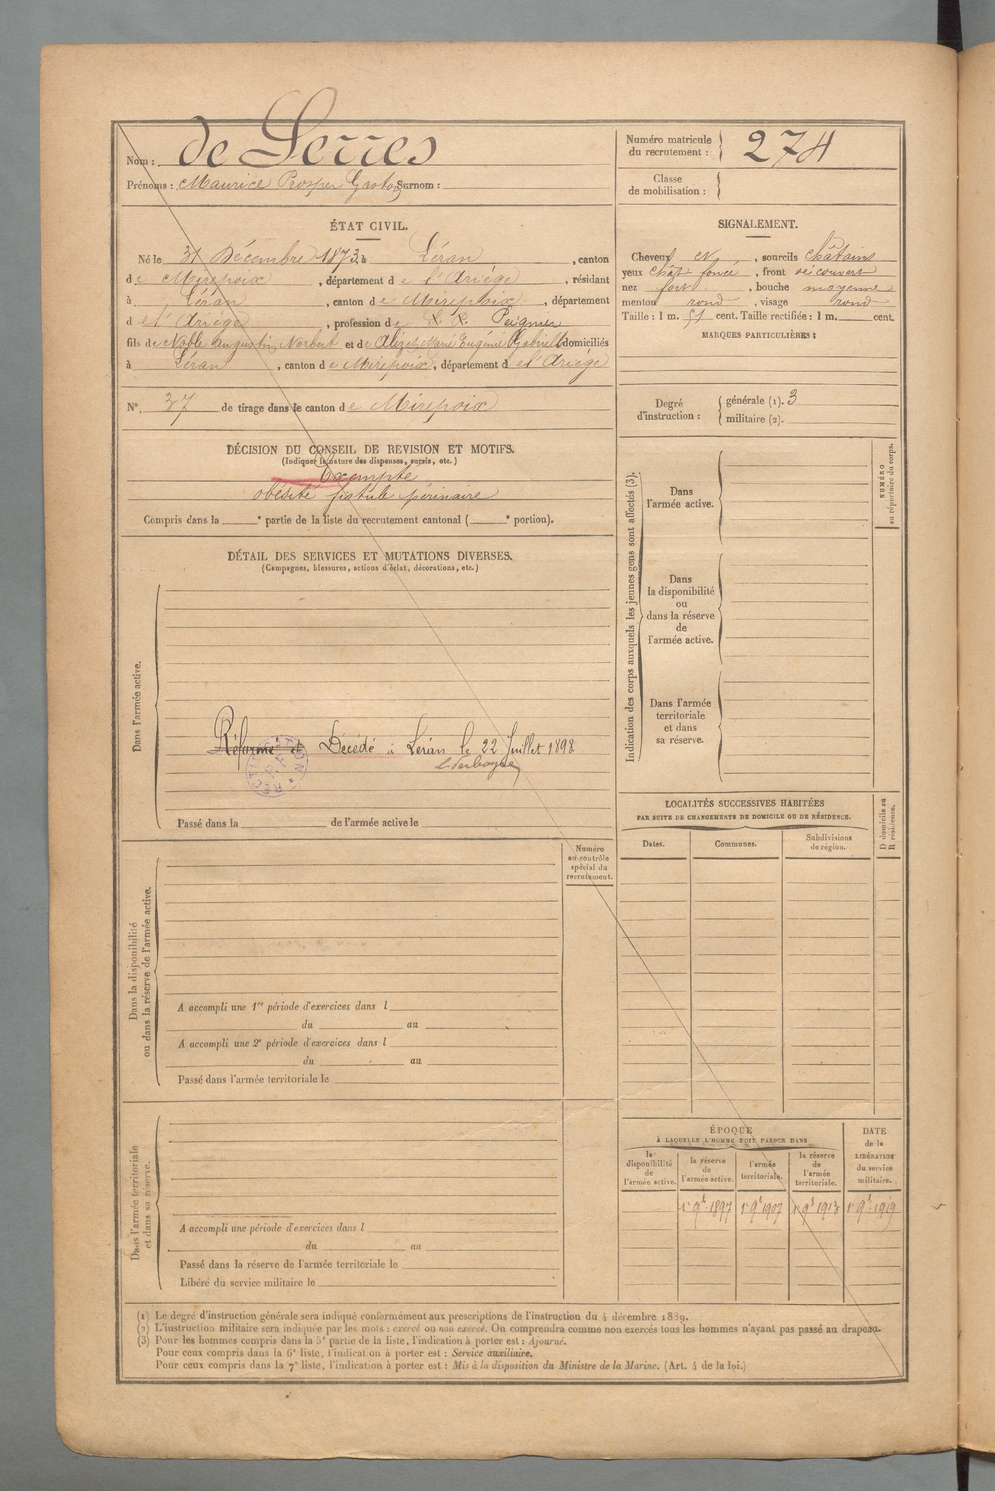 Nom : de Serres
Prénoms : Maurice Prosper Gaston Surnom :
Numéro matricule
du recrutement : 274
Classe
de mobilisation :
ÉTAT CIVIL.
Né le 31 Décembre 1873, à Léran, canton
de Mirepoix, département de l'Ariége, résidant
à Léran, canton de Mirepoix, département
de l'Ariége, profession de Peignier
fils de Noble Augustin Norbert et de Marie Eugénie Gabrielle domiciliés
à Léran, canton de Mirepoix, département de l'Ariége
N° 37 de tirage dans le canton de Mirepoix
SIGNALEMENT.
Cheveux et, sourcils châtains
yeux chât foncé, front découvert
nez fort, bouche moyenne
menton rond, visage rond
Taille : 1 m. 51 cent. Taille rectifiée : 1 m. cent.
MARQUES PARTICULIÈRES :
Degré
d'instruction :
générale (1). 3
militaire (2).
DÉCISION DU CONSEIL DE REVISION ET MOTIFS.
(Indiquer la nature des dispenses, sursis, etc.)
Exempté
obésité fistule périnaire
Compris dans la e partie de la liste du recrutement cantonal ( e portion).
DÉTAIL DES SERVICES ET MUTATIONS DIVERSES.
(Campagnes, blessures, actions d'éclat, décorations, etc.)
Dans l'armée active.
Réformé et Décédé à Léran le 22 Juillet 1898
Passé dans la de l'armée active le
Dans la disponibilité
ou dans la réserve de l'armée active.
Numéro
au contrôle
spécial du
recrutement.
A accompli une 1re période d'exercices dans l
du au
A accompli une 2e période d'exercices dans l
du au
Passé dans l'armée territoriale le
Dans l'armée territoriale
et dans sa réserve.
A accompli une période d'exercices dans l
du au
Passé dans la réserve de l'armée territoriale le
Libéré du service militaire le
Indication des corps auxquels les jeunes gens sont affectés (3).
NUMÉRO
au répertoire du corps.
Dans
l'armée active.
Dans
la disponibilité
ou
dans la réserve
de
l'armée active.
Dans l'armée
territoriale
et dans
sa réserve.
LOCALITÉS SUCCESSIVES HABITÉES
PAR SUITE DE CHANGEMENTS DE DOMICILE OU DE RÉSIDENCE.
D domicile ou
R résidence.
Dates. Communes. Subdivisions
de région.
ÉPOQUE
À LAQUELLE L'HOMME DOIT PASSER DANS
la
disponibilité
de
l'armée active.
la réserve
de
l'armée active.
l'armée
territoriale.
la réserve
de
l'armée
territoriale.
DATE
de la
LIBÉRATION
du service
militaire.
1er 9bre 1897 1er 9bre 1907 1er 9bre 1913 1er 9bre 1919
(1) Le degré d'instruction générale sera indiqué conformément aux prescriptions de l'instruction du 4 décembre 1889.
(2) L'instruction militaire sera indiquée par les mots : exercé ou non exercé. On comprendra comme non exercés tous les hommes n'ayant pas passé au drapeau.
(3) Pour les hommes compris dans la 5e partie de la liste, l'indication à porter est : Ajourné.
Pour ceux compris dans la 6e liste, l'indication à porter est : Service auxiliaire.
Pour ceux compris dans la 7e liste, l'indication à porter est : Mis à la disposition du Ministre de la Marine. (Art. 4 de la loi.)